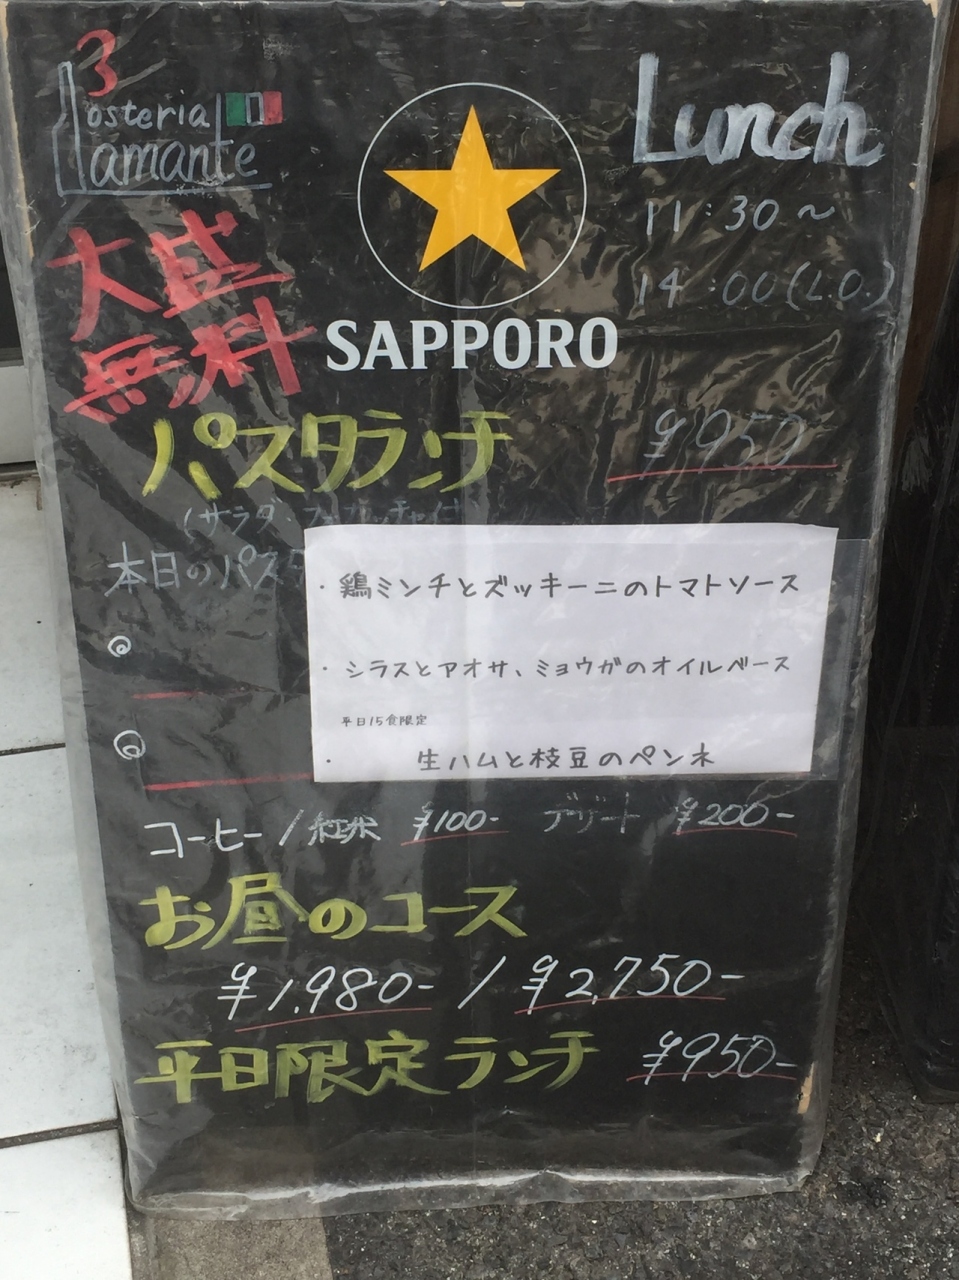 3
osteria
Lamante
Lunch
11:30〜
14:00(L.O.)
大盛
無料
SAPPORO
パスタランチ ¥950
(サラダ、フォカッチャ付
本日のパスタ
・鶏ミンチとズッキーニのトマトソース
・シラスとアオサ、ミョウガのオイルベース
平日15食限定
・生ハムと枝豆のペンネ
コーヒー/紅茶 ¥100- デザート ¥200-
お昼のコース
¥1,980- / ¥2,750-
平日限定ランチ ¥950-